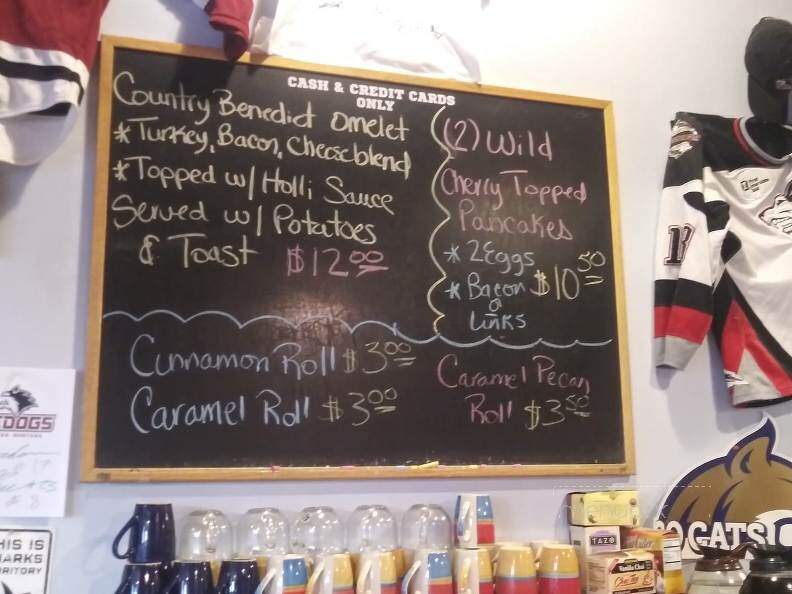 CASH & CREDIT CARDS
ONLY
Country Benedict Omelet
* Turkey, Bacon, Cheese blend
* Topped w/ Holli Sauce
Served w/ Potatoes
& Toast $12.00
(2) Wild
Cherry Topped
Pancakes
* 2 Eggs
* Bacon $10.50
or
Links
Cinnamon Roll $3.00
Caramel Roll $3.00
Caramel Pecan
Roll $3.50
TAZO
Vanilla Chai
Chai Tea
GO CATS
HIS IS
ARKS
RRITORY